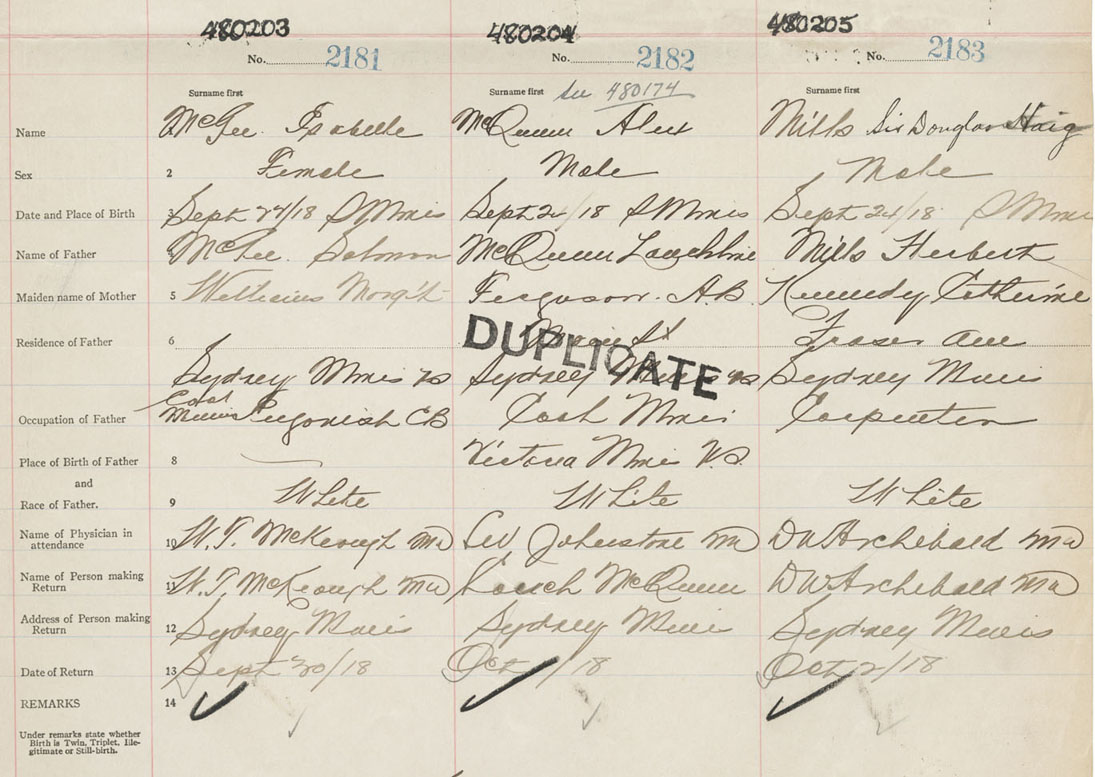 480203 480204 480205
No. 2181 No. 2182 No. 2183
Surname first Surname first See 480174 Surname first
Name McGee Isabelle McQueen Alex Mills Sir Douglas Haig
Sex 2 Female Male Male
Date and Place of Birth 3 Sept 24/18 S Mines Sept 2 /18 S Mines Sept 24/18 S Mines
Name of Father McGee McQueen Lauchline Mills Herbert
Maiden name of Mother 5 Ferguson A.B. Kennedy Catherine
Residence of Father 6 St Fraser Ave
Sydney Mines NS Sydney Mines NS Sydney Mines
DUPLICATE
Coal
Occupation of Father Miner CB Coal Carpenter
Place of Birth of Father 8 Victoria Mines N.S.
and
Race of Father. 9 White White White
Name of Physician in
attendance 10 W.T. McKeough MD Johnstone MD DW Archibald MD
Name of Person making
Return 11 W.T. McKeough MD Lauch McQueen DW Archibald MD
Address of Person making
Return 12 Sydney Mines Sydney Mines Sydney Mines
Date of Return 13 Sept 30/18 Oct /18 Oct 2/18
REMARKS 14
Under remarks state whether
Birth is Twin, Triplet, Ille-
gitimate or Still-birth.